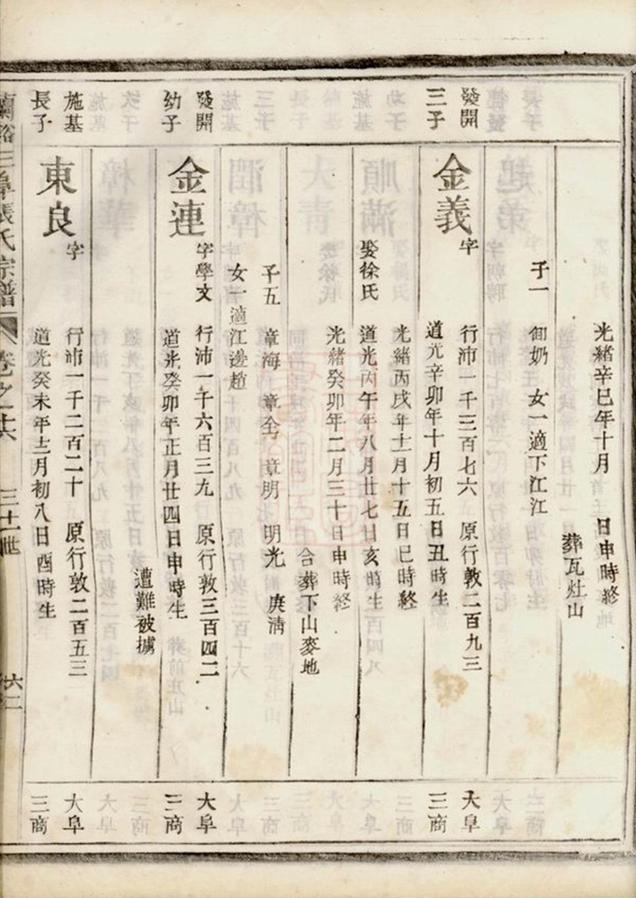 光緒辛巳年十月　日申時終
葬瓦灶山
子一　御奶　女一適下江江
發開
三子
金義
字　行沛一千三百七六　原行敦二百九三
道光辛卯年十月初五日丑時生
光緒丙戌年十一月十五日巳時終
娶徐氏　道光丙午年八月廿七日亥時生
光緒癸卯年二月三十日申時終
合葬下山麥地
子五　章海　章全　章明　明光　庚清
女一適江邊趙
大阜
三商
發開
幼子
金連
字學文　行沛一千六百三九　原行敦三百四二
道光癸卯年正月廿四日申時生
遭難被擄
大阜
三商
施基
長子
東良
字　行沛一千二百二十　原行敦二百五三
道光癸未年十二月初八日酉時生
大阜
三商
蘭谿三阜張氏宗譜　卷之十六　三十一世　六二